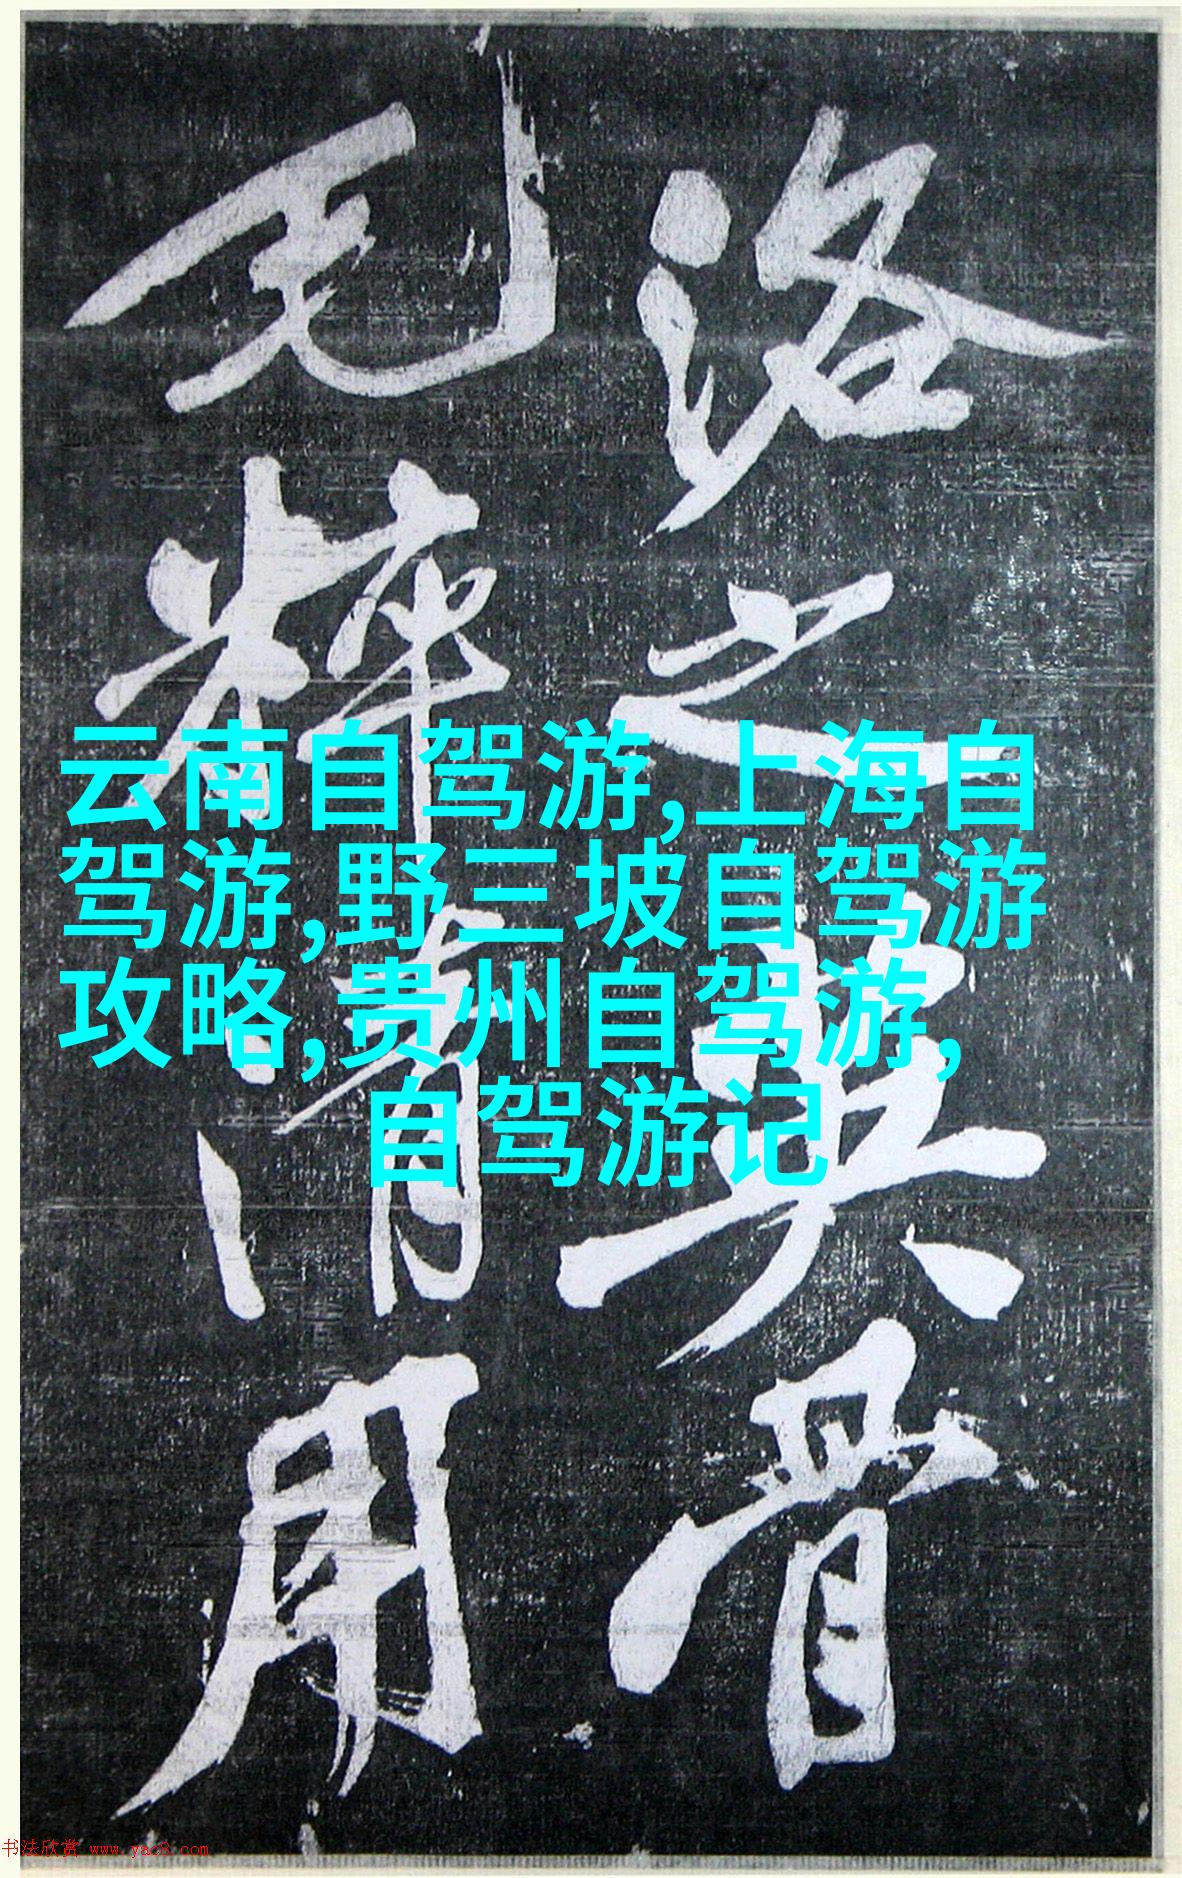 洛之英骨
毛粹清用
云南自驾游,上海自
驾游,野三坡自驾游
攻略,贵州自驾游,
自驾游记
书法欣赏 www.yac8.com